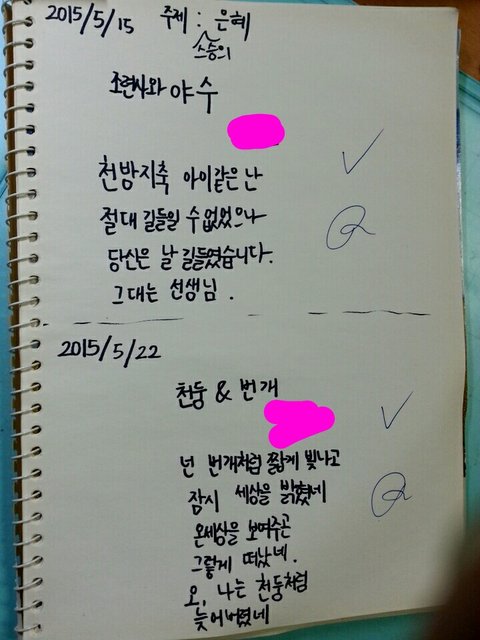 2015/5/15 주제 : 스승의 은혜
조련사와 야수
천방지축 아이같은 난
절대 길들일 수 없었으나
당신은 날 길들였습니다.
그대는 선생님.
2015/5/22
천둥 & 번개
넌 번개처럼 짧게 빛나고
잠시 세상을 밝혔네
온세상을 보여주곤
그렇게 떠났네.
오, 나는 천둥처럼
늦어버렸네